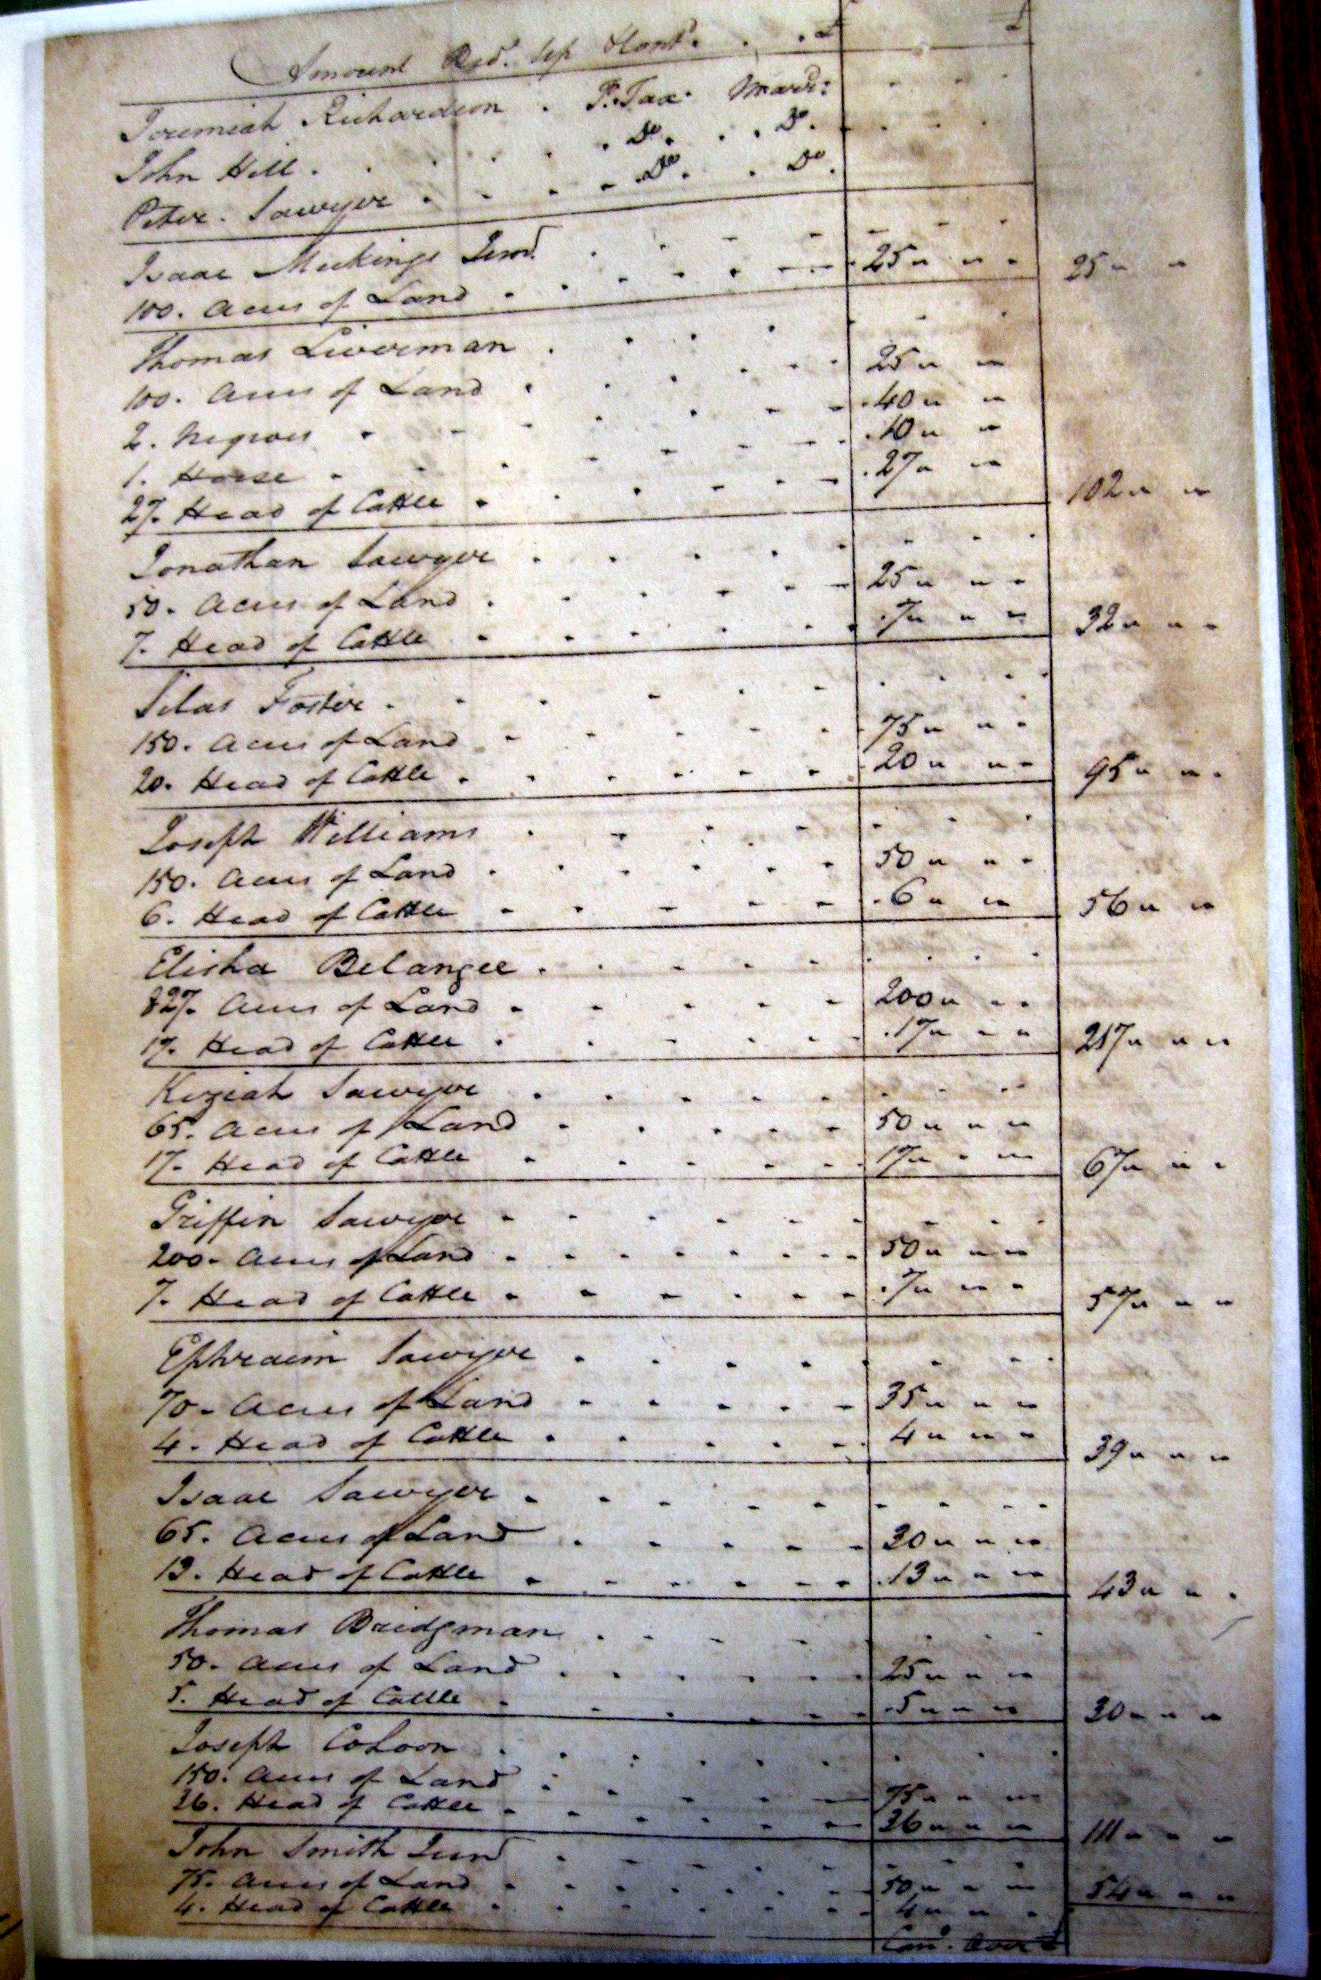 Amount Bro.t . . £ £
Jeremiah Richardson . P. Tax. Marr:
John Hill . . . . Do. . . Do.
Peter Sawyer . . . . Do. . Do.
Isaac Meekings Junr.
100. Acres of Land . . . . 25 " " 25 " "
Thomas Liverman . . . .
100. Acres of Land . . . . 25 " "
2. Negroes . . . . 40 " "
1. Horse . . . . 10 " "
27. Head of Cattle . . . . 27 " " 102 " "
Jonathan Sawyer . . . .
50. Acres of Land . . . . 25 " "
7. Head of Cattle . . . . 7 " " 32 " "
Silas Foster . . . .
150. Acres of Land . . . . 75 " "
20. Head of Cattle . . . . 20 " " 95 " "
Joseph Williams . . . .
150. Acres of Land . . . . 50 " "
6. Head of Cattle . . . . 6 " " 56 " "
Elisha Belangee . . . .
827. Acres of Land . . . . 200 " "
17. Head of Cattle . . . . 17 " " 217 " "
Keziah Sawyer . . . .
65. Acres of Land . . . . 50 " "
17. Head of Cattle . . . . 17 " " 67 " "
Griffin Sawyer . . . .
200. Acres of Land . . . . 50 " "
7. Head of Cattle . . . . 7 " " 57 " "
Ephraim Sawyer . . . .
70. Acres of Land . . . . 35 " "
4. Head of Cattle . . . . 4 " " 39 " "
Isaac Sawyer . . . .
65. Acres of Land . . . . 30 " "
13. Head of Cattle . . . . 13 " " 43 " "
Thomas Bridgman . . . .
50. Acres of Land . . . . 25 " "
5. Head of Cattle . . . . 5 " " 30 " "
Joseph Cohoon . . . .
150. Acres of Land . . . . 75 " "
36. Head of Cattle . . . . 36 " " 111 " "
John Smith Junr . . . .
75. Acres of Land . . . . 50 " " 54 " "
4. Head of Cattle . . . . 4 " "
Carr.d Over £